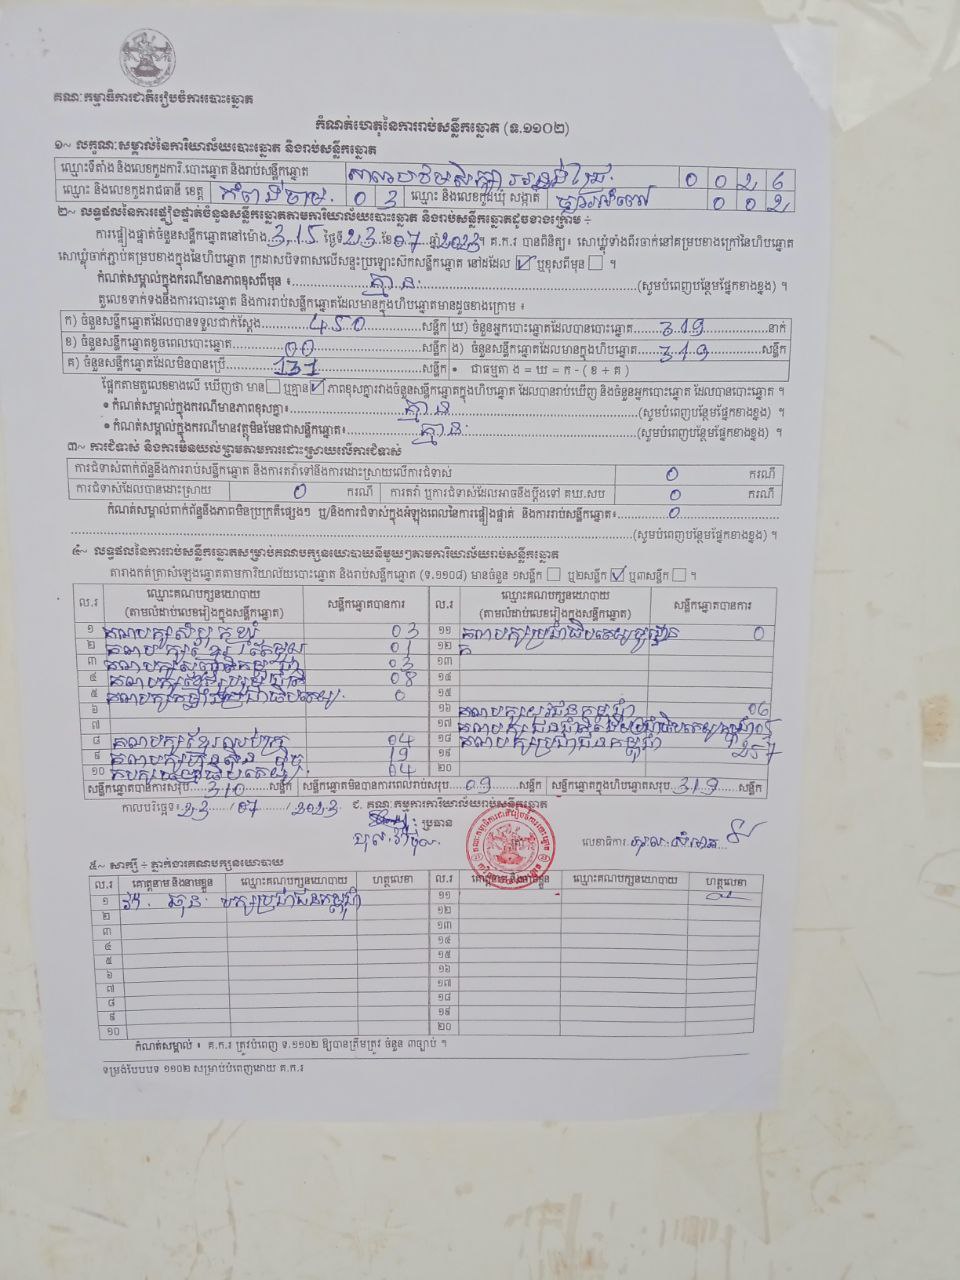 គណៈកម្មាធិការជាតិរៀបចំការបោះឆ្នោត
កំណត់ហេតុនៃការរាប់សន្លឹកឆ្នោត (ទ.១១០២)
១~ លក្ខណៈសម្គាល់នៃការិយាល័យបោះឆ្នោត និងរាប់សន្លឹកឆ្នោត
ឈ្មោះទីតាំង និងលេខកូដការិ.បោះឆ្នោត និងរាប់សន្លឹកឆ្នោត សាលាបឋមសិក្សា 0 0 2 6
ឈ្មោះ និងលេខកូដរាជធានី ខេត្ត កំពង់ចាម 0 3 ឈ្មោះ និងលេខកូដឃុំ សង្កាត់ 0 0 2
២~ លទ្ធផលនៃការផ្ទៀងផ្ទាត់ចំនួនសន្លឹកឆ្នោតតាមការិយាល័យបោះឆ្នោត និងរាប់សន្លឹកឆ្នោតដូចខាងក្រោម ÷
ការផ្ទៀងផ្ទាត់ចំនួនសន្លឹកឆ្នោតនៅម៉ោង 3,15 ថ្ងៃទី 23 ខែ 07 ឆ្នាំ 2023 ។ គ.ក.រ បានពិនិត្យ៖ សោឃ្មុំទាំងពីរចាក់នៅគម្របខាងក្រៅនៃហិបឆ្នោត
សោឃ្មុំចាក់ភ្ជាប់គម្របខាងក្នុងនៃហិបឆ្នោត ក្រដាសបិទពាសលើសន្ទះប្រឡោះសឹកសន្លឹកឆ្នោត នៅដដែល ☑ ឬខុសពីមុន ☐ ។
កំណត់សម្គាល់ក្នុងករណីមានភាពខុសពីមុន ៖ គ្មាន (សូមបំពេញបន្ថែមផ្នែកខាងខ្នង) ។
តួលេខទាក់ទងនឹងការបោះឆ្នោត និងការរាប់សន្លឹកឆ្នោតដែលមានក្នុងហិបឆ្នោតមានដូចខាងក្រោម ៖
ក) ចំនួនសន្លឹកឆ្នោតដែលបានទទួលជាក់ស្តែង 450 សន្លឹក ឃ) ចំនួនអ្នកបោះឆ្នោតដែលបានបោះឆ្នោត 319 នាក់
ខ) ចំនួនសន្លឹកឆ្នោតខូចពេលបោះឆ្នោត 00 សន្លឹក ង) ចំនួនសន្លឹកឆ្នោតដែលមានក្នុងហិបឆ្នោត 319 សន្លឹក
គ) ចំនួនសន្លឹកឆ្នោតដែលមិនបានប្រើ 131 សន្លឹក • ជាធម្មតា ង = ឃ = ក - ( ខ + គ )
ផ្អែកតាមតួលេខខាងលើ ឃើញថា មាន ☐ ឬគ្មាន ☑ ភាពខុសគ្នារវាងចំនួនសន្លឹកឆ្នោតក្នុងហិបឆ្នោត ដែលបានរាប់ឃើញ និងចំនួនអ្នកបោះឆ្នោត ដែលបានបោះឆ្នោត ។
• កំណត់សម្គាល់ក្នុងករណីមានភាពខុសគ្នា៖ គ្មាន (សូមបំពេញបន្ថែមផ្នែកខាងខ្នង) ។
• កំណត់សម្គាល់ក្នុងករណីមានវត្ថុមិនមែនជាសន្លឹកឆ្នោត៖ គ្មាន (សូមបំពេញបន្ថែមផ្នែកខាងខ្នង) ។
៣~ ការជំទាស់ និងការមិនយល់ព្រមតាមការដោះស្រាយលើការជំទាស់
ការជំទាស់ពាក់ព័ន្ធនឹងការរាប់សន្លឹកឆ្នោត និងការតវ៉ាទៅនឹងការដោះស្រាយលើការជំទាស់ 0 ករណី
ការជំទាស់ដែលបានដោះស្រាយ 0 ករណី ការតវ៉ា ឬការជំទាស់ដែលអាចនឹងប្តឹងទៅ គឃ.សប 0 ករណី
កំណត់សម្គាល់ពាក់ព័ន្ធនឹងភាពមិនប្រក្រតីផ្សេងៗ ឬ/និងការជំទាស់ក្នុងអំឡុងពេលនៃការផ្ទៀងផ្ទាត់ និងការរាប់សន្លឹកឆ្នោត៖ 0
(សូមបំពេញបន្ថែមផ្នែកខាងខ្នង) ។
៤~ លទ្ធផលនៃការរាប់សន្លឹកឆ្នោតសម្រាប់គណបក្សនយោបាយនីមួយៗតាមការិយាល័យរាប់សន្លឹកឆ្នោត
តារាងកត់ត្រាសំឡេងឆ្នោតតាមការិយាល័យបោះឆ្នោត និងរាប់សន្លឹកឆ្នោត (ទ.១១០៨) មានចំនួន ១សន្លឹក ☐ ឬ២សន្លឹក ☑ ឬ៣សន្លឹក ☐ ។
ល.រ ឈ្មោះគណបក្សនយោបាយ (តាមលំដាប់លេខរៀងក្នុងសន្លឹកឆ្នោត) សន្លឹកឆ្នោតបានការ ល.រ ឈ្មោះគណបក្សនយោបាយ (តាមលំដាប់លេខរៀងក្នុងសន្លឹកឆ្នោត) សន្លឹកឆ្នោតបានការ
១ គណបក្ស 03 ១១ គណបក្សប្រជាធិបតេយ្យមូលដ្ឋាន 0
២ គណបក្សខ្មែរតែមួយ 01 ១២
៣ គណបក្សសញ្ជាតិកម្ពុជា 03 ១៣
៤ គណបក្សខ្មែររួបរួមជាតិ 08 ១៤
៥ គណបក្ស 0 ១៥
៦ ១៦ គណបក្សយុវជនកម្ពុជា 06
៧ ១៧ គណបក្ស 05
៨ គណបក្សខ្មែរ 04 ១៨ គណបក្សប្រជាជនកម្ពុជា 257
៩ គណបក្សហ្វ៊ុនស៊ិនប៉ិច 19 ១៩
១០ 04 ២០
សន្លឹកឆ្នោតបានការសរុប 310 សន្លឹក សន្លឹកឆ្នោតមិនបានការពេលរាប់សរុប 09 សន្លឹក សន្លឹកឆ្នោតក្នុងហិបឆ្នោតសរុប 319 សន្លឹក
កាលបរិច្ឆេទ៖ 23 / 07 / 2023 ជ. គណៈកម្មការការិយាល័យរាប់សន្លឹកឆ្នោត
ប្រធាន លេខាធិការ
៥~ សាក្សី ÷ ភ្នាក់ងារគណបក្សនយោបាយ
ល.រ គោត្តនាម និងនាមខ្លួន ឈ្មោះគណបក្សនយោបាយ ហត្ថលេខា ល.រ គោត្តនាម និងនាមខ្លួន ឈ្មោះគណបក្សនយោបាយ ហត្ថលេខា
១ បក្សប្រជាជនកម្ពុជា ១១
២ ១២
៣ ១៣
៤ ១៤
៥ ១៥
៦ ១៦
៧ ១៧
៨ ១៨
៩ ១៩
១០ ២០
កំណត់សម្គាល់ ៖ គ.ក.រ ត្រូវបំពេញ ទ.១១០២ ឱ្យបានត្រឹមត្រូវ ចំនួន ៣ច្បាប់ ។
ទម្រង់បែបបទ ១១០២ សម្រាប់បំពេញដោយ គ.ក.រ